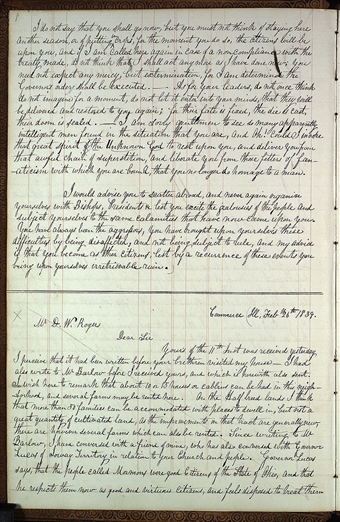 I do not say that you shall go now, but you must not think of staying here
another season, or of putting in crops, for the moment you do so, the citizens will be
upon you, and if I am called here again in case of a non compliance with the
treaty made, do not think that I shall act any more as I have done now you
need not expect any mercy, but extermination, for I am determined the
Governor's order shall be executed. — As for your leaders, do not once think
do not imagine for a moment, do not let it enter into your minds, that they will
be delivered and restored to you again; for their fate is fixed, the die is cast,
their doom is sealed. — I am sorry Gentlemen to see so many apparently
intelligent men found in the situation that you are, and Oh! could I invoke
that great spirit of the Unknown God to rest upon you, and deliver you from
that awful chain of superstition, and liberate you from those fetters of fan-
aticism with which you are bound, that you no longer do homage to a man.
I would advise you to scatter abroad, and never again organize
yourselves with Bishops, Presidents &c lest you excite the jealousies of the people and
subject yourselves to the same calamities that have now come upon you.
You have always been the aggressors, you have brought upon yourselves these
difficulties by being disaffected, and not being subject to rule, and my advice
is that you become as other citizens, lest by a recurrence of these events you
bring upon yourselves irretrievable ruin.
Commerce Ill, Feb 26th 1839.
Mr D. W. Rogers
Dear Sir
Yours of the 11th inst was received yesterday,
I perceive that it had been written before your brethren visited my house. I had
also wrote to Mr Barlow before I received yours, and which is herewith also sent.
I wish here to remark that about 10 or 15 houses or cabbins can be had in this neigh-
borhood, and several farms may be rented here. On the half breed lands I think
that more than 50 families can be accommodated with places to dwell in, but not a
great quantity of cultivated land, as the improvements on that tract are generally new;
there are however several farms which can also be rented. Since writing to Mr
Barlow, I have conversed with a friend of mine, who has also conversed with Govornor
Lucas of Ioway Territory in relation to your Church and people. Governor Lucas
says, that the people called Mormons were good citizens of the State of Ohio, and that
he respects them now as good and virtuous citizens, and feels disposed to treat them